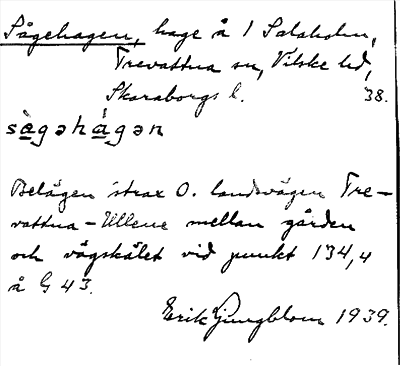 Sågehagen, hage å 1 Salaholm,
Trevattna sn, Vilske hd,
Skaraborgs l. 38.
sàgəhágən
Belägen strax O. landsvägen Tre-
vattna - Ullene mellan gården
och vägskälet vid punkt 134,4
å G 43.
Erik Ljungblom 1939.